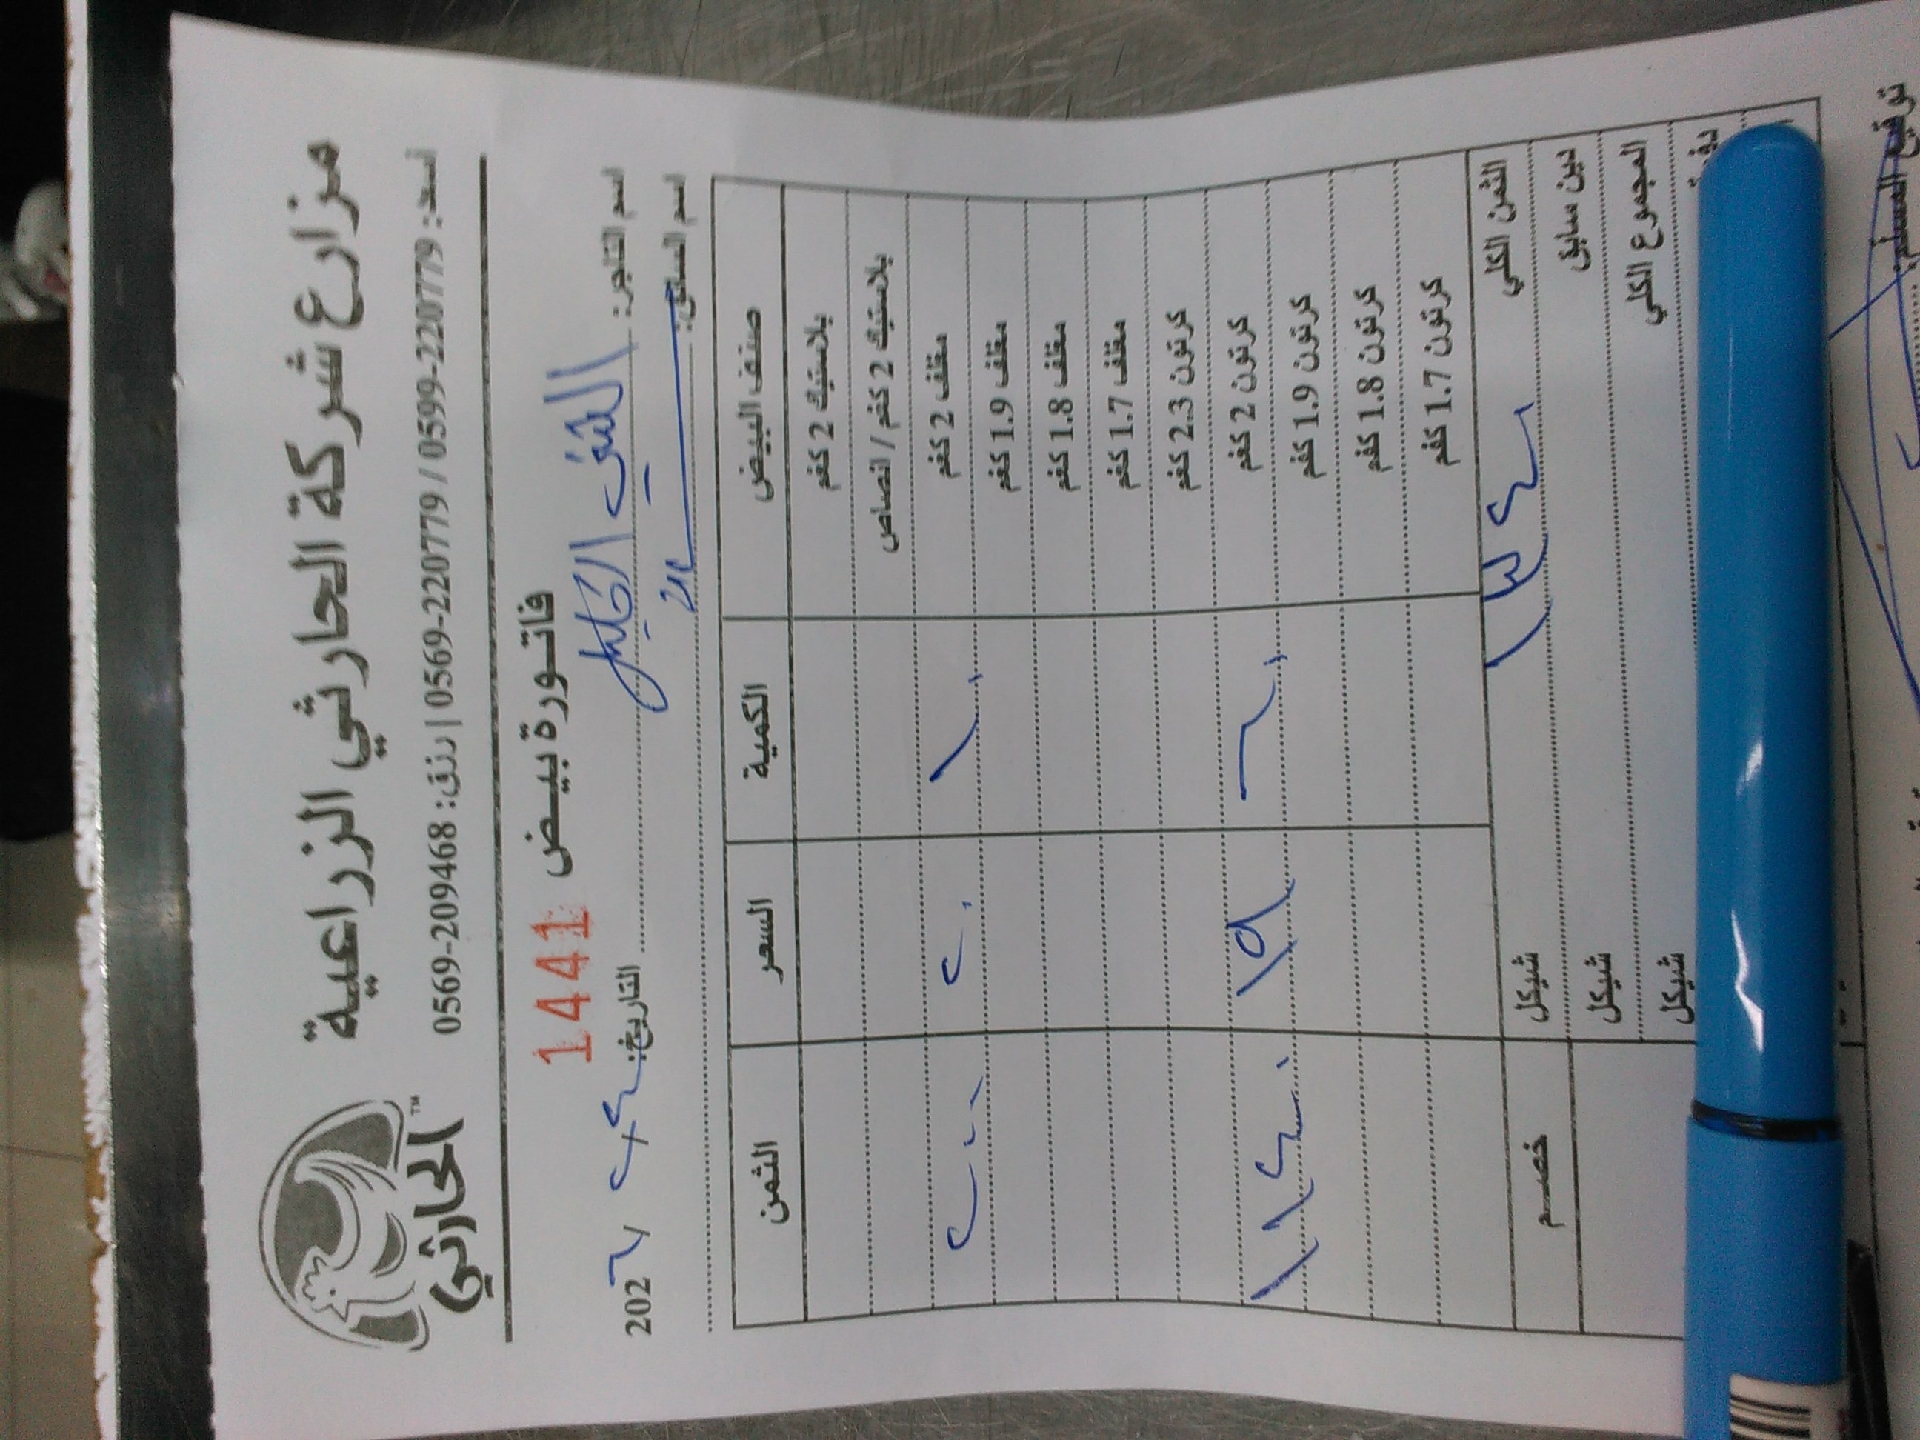 مزارع شركة الحارثي الزراعية
الحارثي TM
أسعد: 0599-220779 / 0569-220779 | رزق: 0569-209468
فاتورة بيض 1441
اسم التاجر: التاريخ: 202
اسم السائق:
صنف البيض الكمية السعر الثمن
بلاستيك 2 كغم
بلاستيك 2 كغم / انصاص
مغلف 2 كغم ١٠ ٢٠ ٢٠٠
مغلف 1.9 كغم
مغلف 1.8 كغم
مغلف 1.7 كغم
كرتون 2.3 كغم
كرتون 2 كغم ٦٠ ١٩ ١١٤٠
كرتون 1.9 كغم
كرتون 1.8 كغم
كرتون 1.7 كغم
الثمن الكلي ١٣٤٠ شيكل خصم
دين سابق شيكل
المجموع الكلي شيكل
توقيع المستلم: